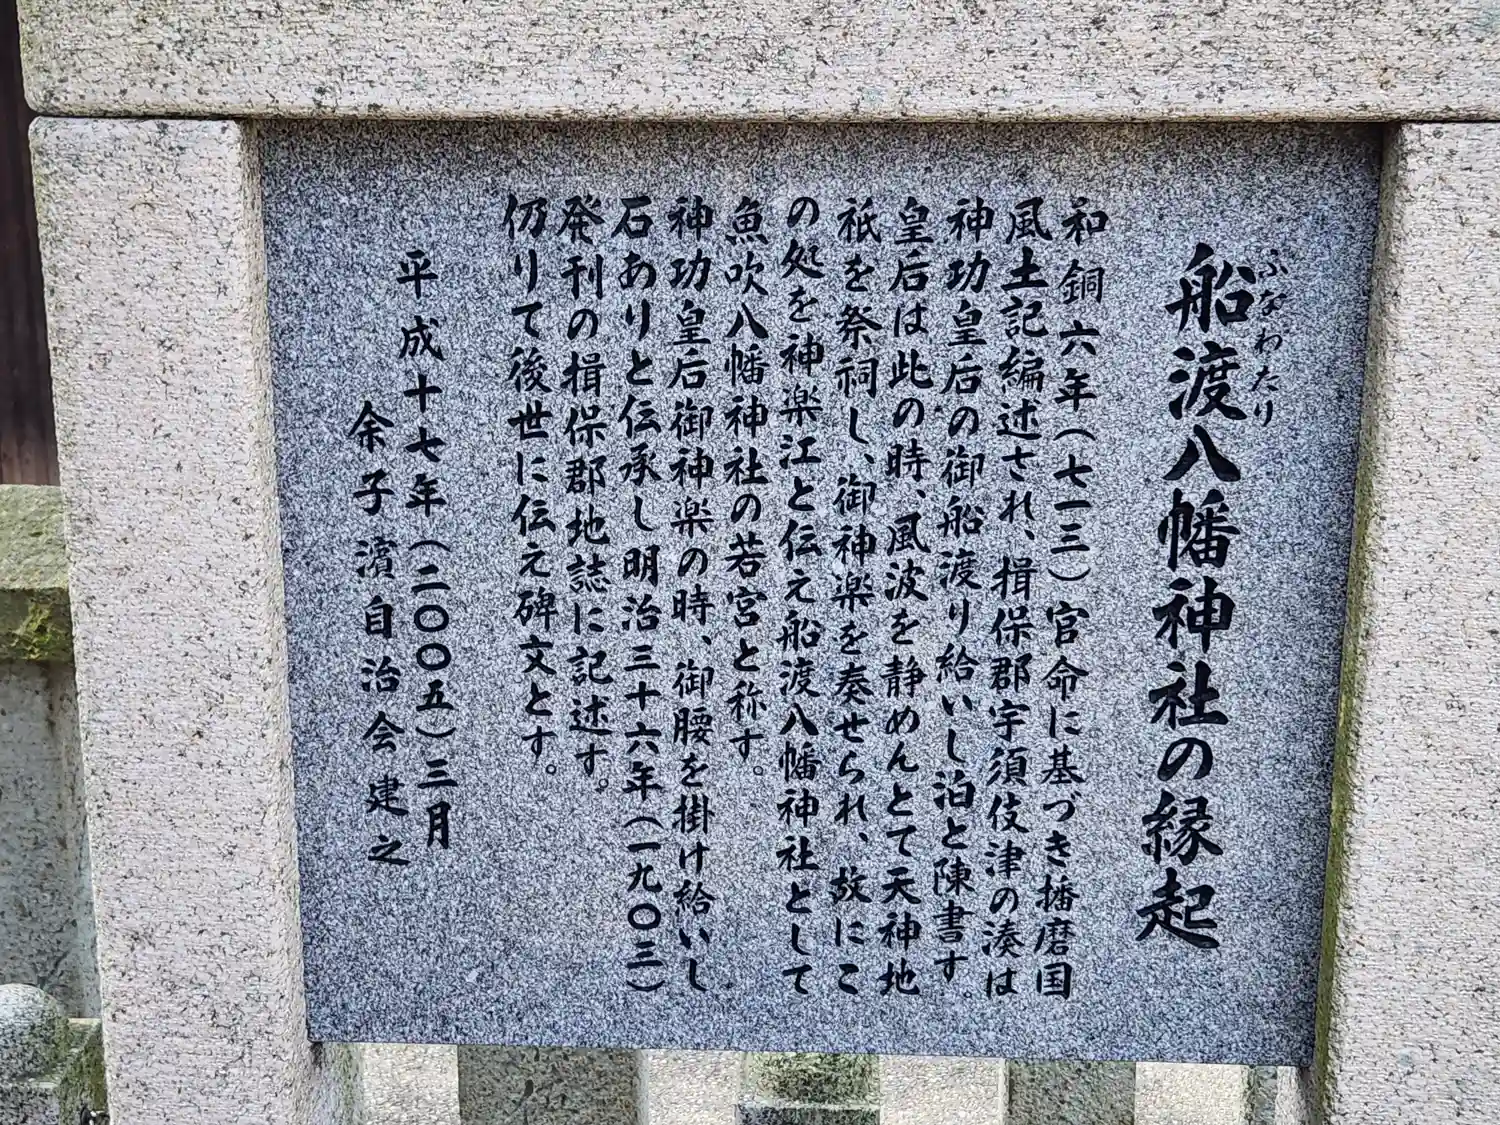 船渡八幡神社の縁起
ふなわたり
和銅六年（七一三）官命に基づき播磨国
風土記編述され、揖保郡宇須伎津の湊は
神功皇后の御船渡り給いし泊と陳書す。
皇后は此の時、風波を静めんとて天神地
祇を祭祠し、御神楽を奏せられ、故にこ
の処を神楽江と伝え船渡八幡神社として
魚吹八幡神社の若宮と称す。
神功皇后御神楽の時、御腰を掛け給いし
石ありと伝承し明治三十六年（一九〇三）
発刊の揖保郡地誌に記述す。
仍りて後世に伝え碑文とす。
平成十七年（二〇〇五）三月
余子濱自治会建之